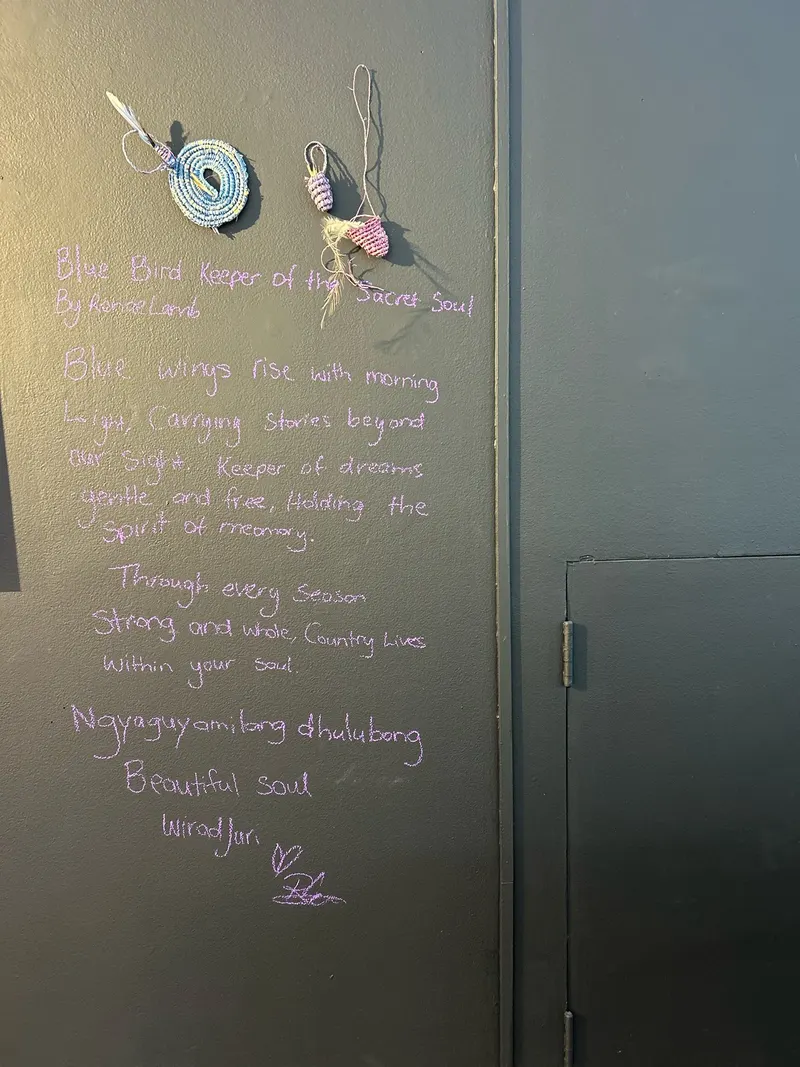 Blue Bird Keeper of the Sacret Soul
By Renae Lamb
Blue wings rise with morning
Light, Carrying Stories beyond
our Sight. Keeper of dreams
gentle and free, Holding the
spirit of meomory.
Through every season
Strong and whole, Country Lives
Within your soul.
Ngyaguyamilang dhulubang
Beautiful soul
Wiradjuri